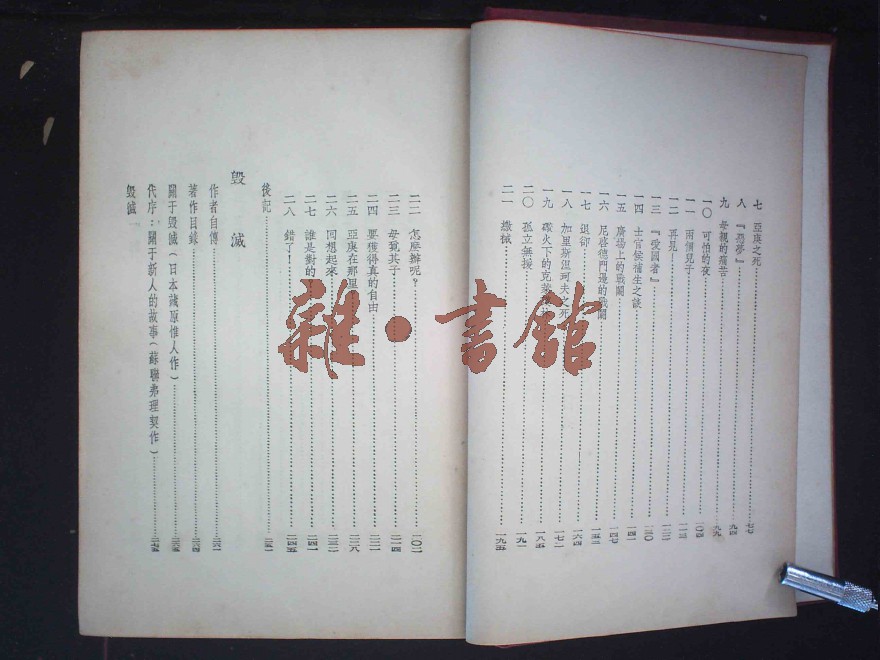 七 亞庚之死 七七
八 『惡夢』 九四
九 母親的痛苦 九九
一〇 可怕的夜 一〇四
一一 兩個兒子
一二 再見
一三 『愛國者』
一四 士官候補生之談 一四一
一五 廣場上的戰鬪 一四七
一六 尼啓德門邊的戰鬪 一五二
一七 退仰 一六四
一八 加里斯涅珂夫之死 一七二
一九 礮火下的克 一八五
二〇 孤立無援 一九一
二一 繳械 一九五
二二 怎麼辦呢？ 二〇二
二三 母覓其子 二一四
二四 要獲得真的自由
二五 亞庚在那里 二二八
二六 回想起來 二三二
二七 誰是對的 二四一
二八 錯了！ 二四五
後記
毀滅
作者自傳 二六一
著作目錄
關于毀滅（日本藏原惟人作）
代序：關于新人的故事（蘇聯弗理契作） 二七五
毀滅
雜·書館